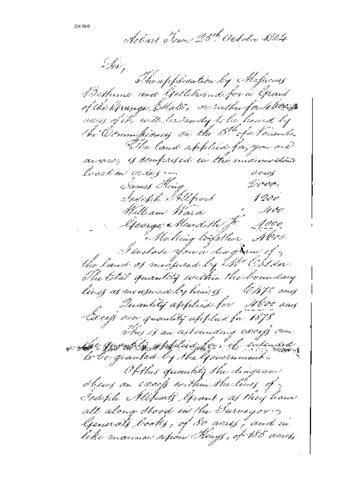 Hobart Town 25th October 1824.
Sir,
The application by Messieurs
Bethune and Gellibrand for a Grant
of the Grange Estate, or rather for 4600
acres of it, will certainly be heard by
the Commissioners on the 5th of November
The land applied for, you are
aware, is comprised in the undermentioned
location orders — acres
James King 2000
Joseph Allport 1200
William Ward 400
George Meredith Jr 1000
Making together 4600
I enclose you a diagram of
the land as measured by Mr
The total quantity within the boundary
lines as measured by him is 6475 acres
Quantity applied for 4600 acres
Excess over quantity applied for 1875
This is an astounding excess over
the quantity applied for, intended
to be granted by the Government.
Of this quantity the diagram
shews an excess within the lines of
Joseph Allport's Grant, as they have
all along stood in the Surveyor
General's books, of 80 acres; and in
like manner upon King's, of 185 acres,